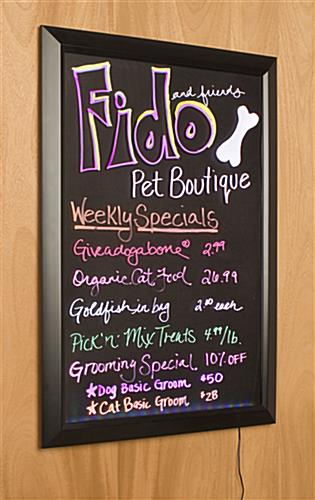 Fido and friends
Pet Boutique
Weekly Specials
Giveadogabone® 2.99
Organic Cat Food 26.99
Goldfish in bag 2.00 each
Pick 'n' Mix Treats 4.99/lb.
Grooming Special 10% OFF
★Dog Basic Groom $50
★Cat Basic Groom $28